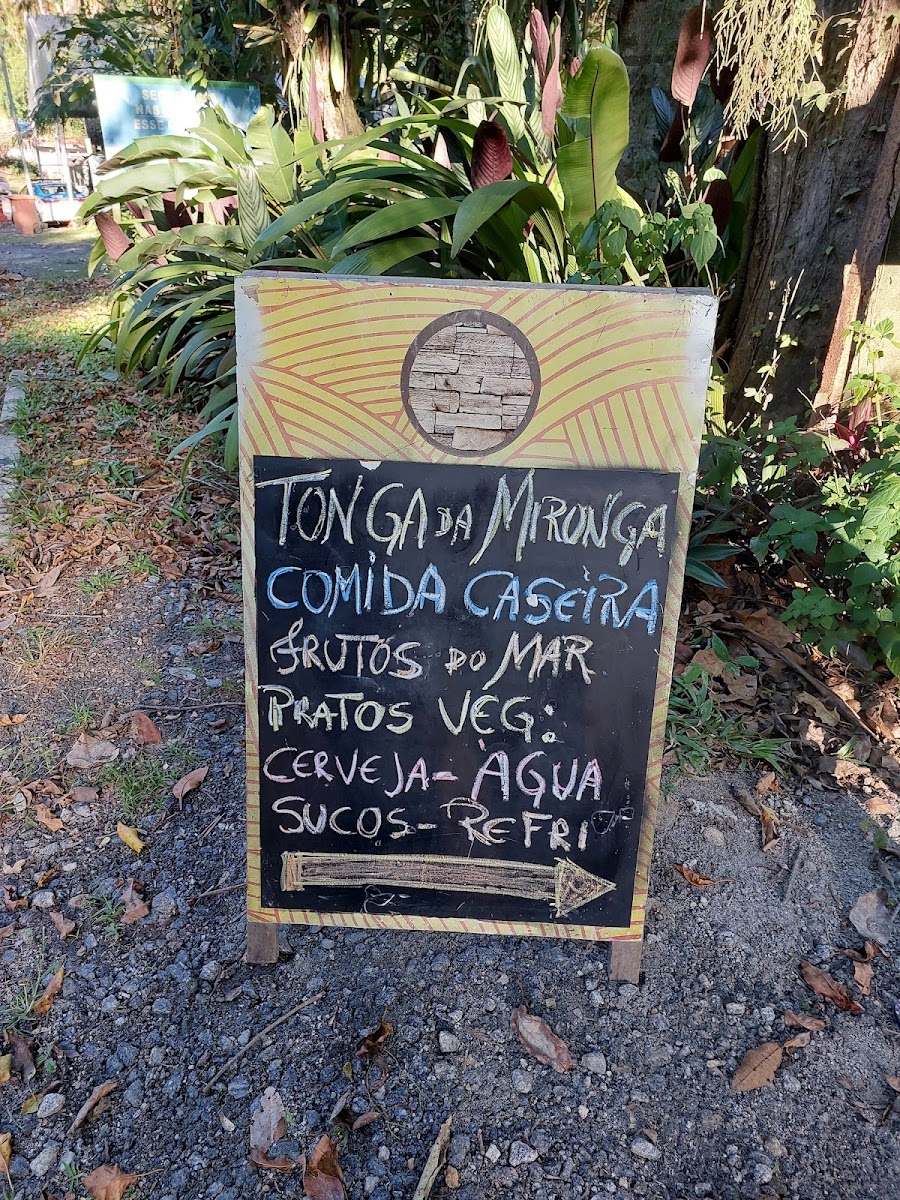 SE
NAS
ESSE
TONGA DA MIRONGA
COMIDA CASEIRA
FRUTOS DO MAR
PRATOS VEG:
CERVEJA - ÁGUA
SUCOS - REFRI